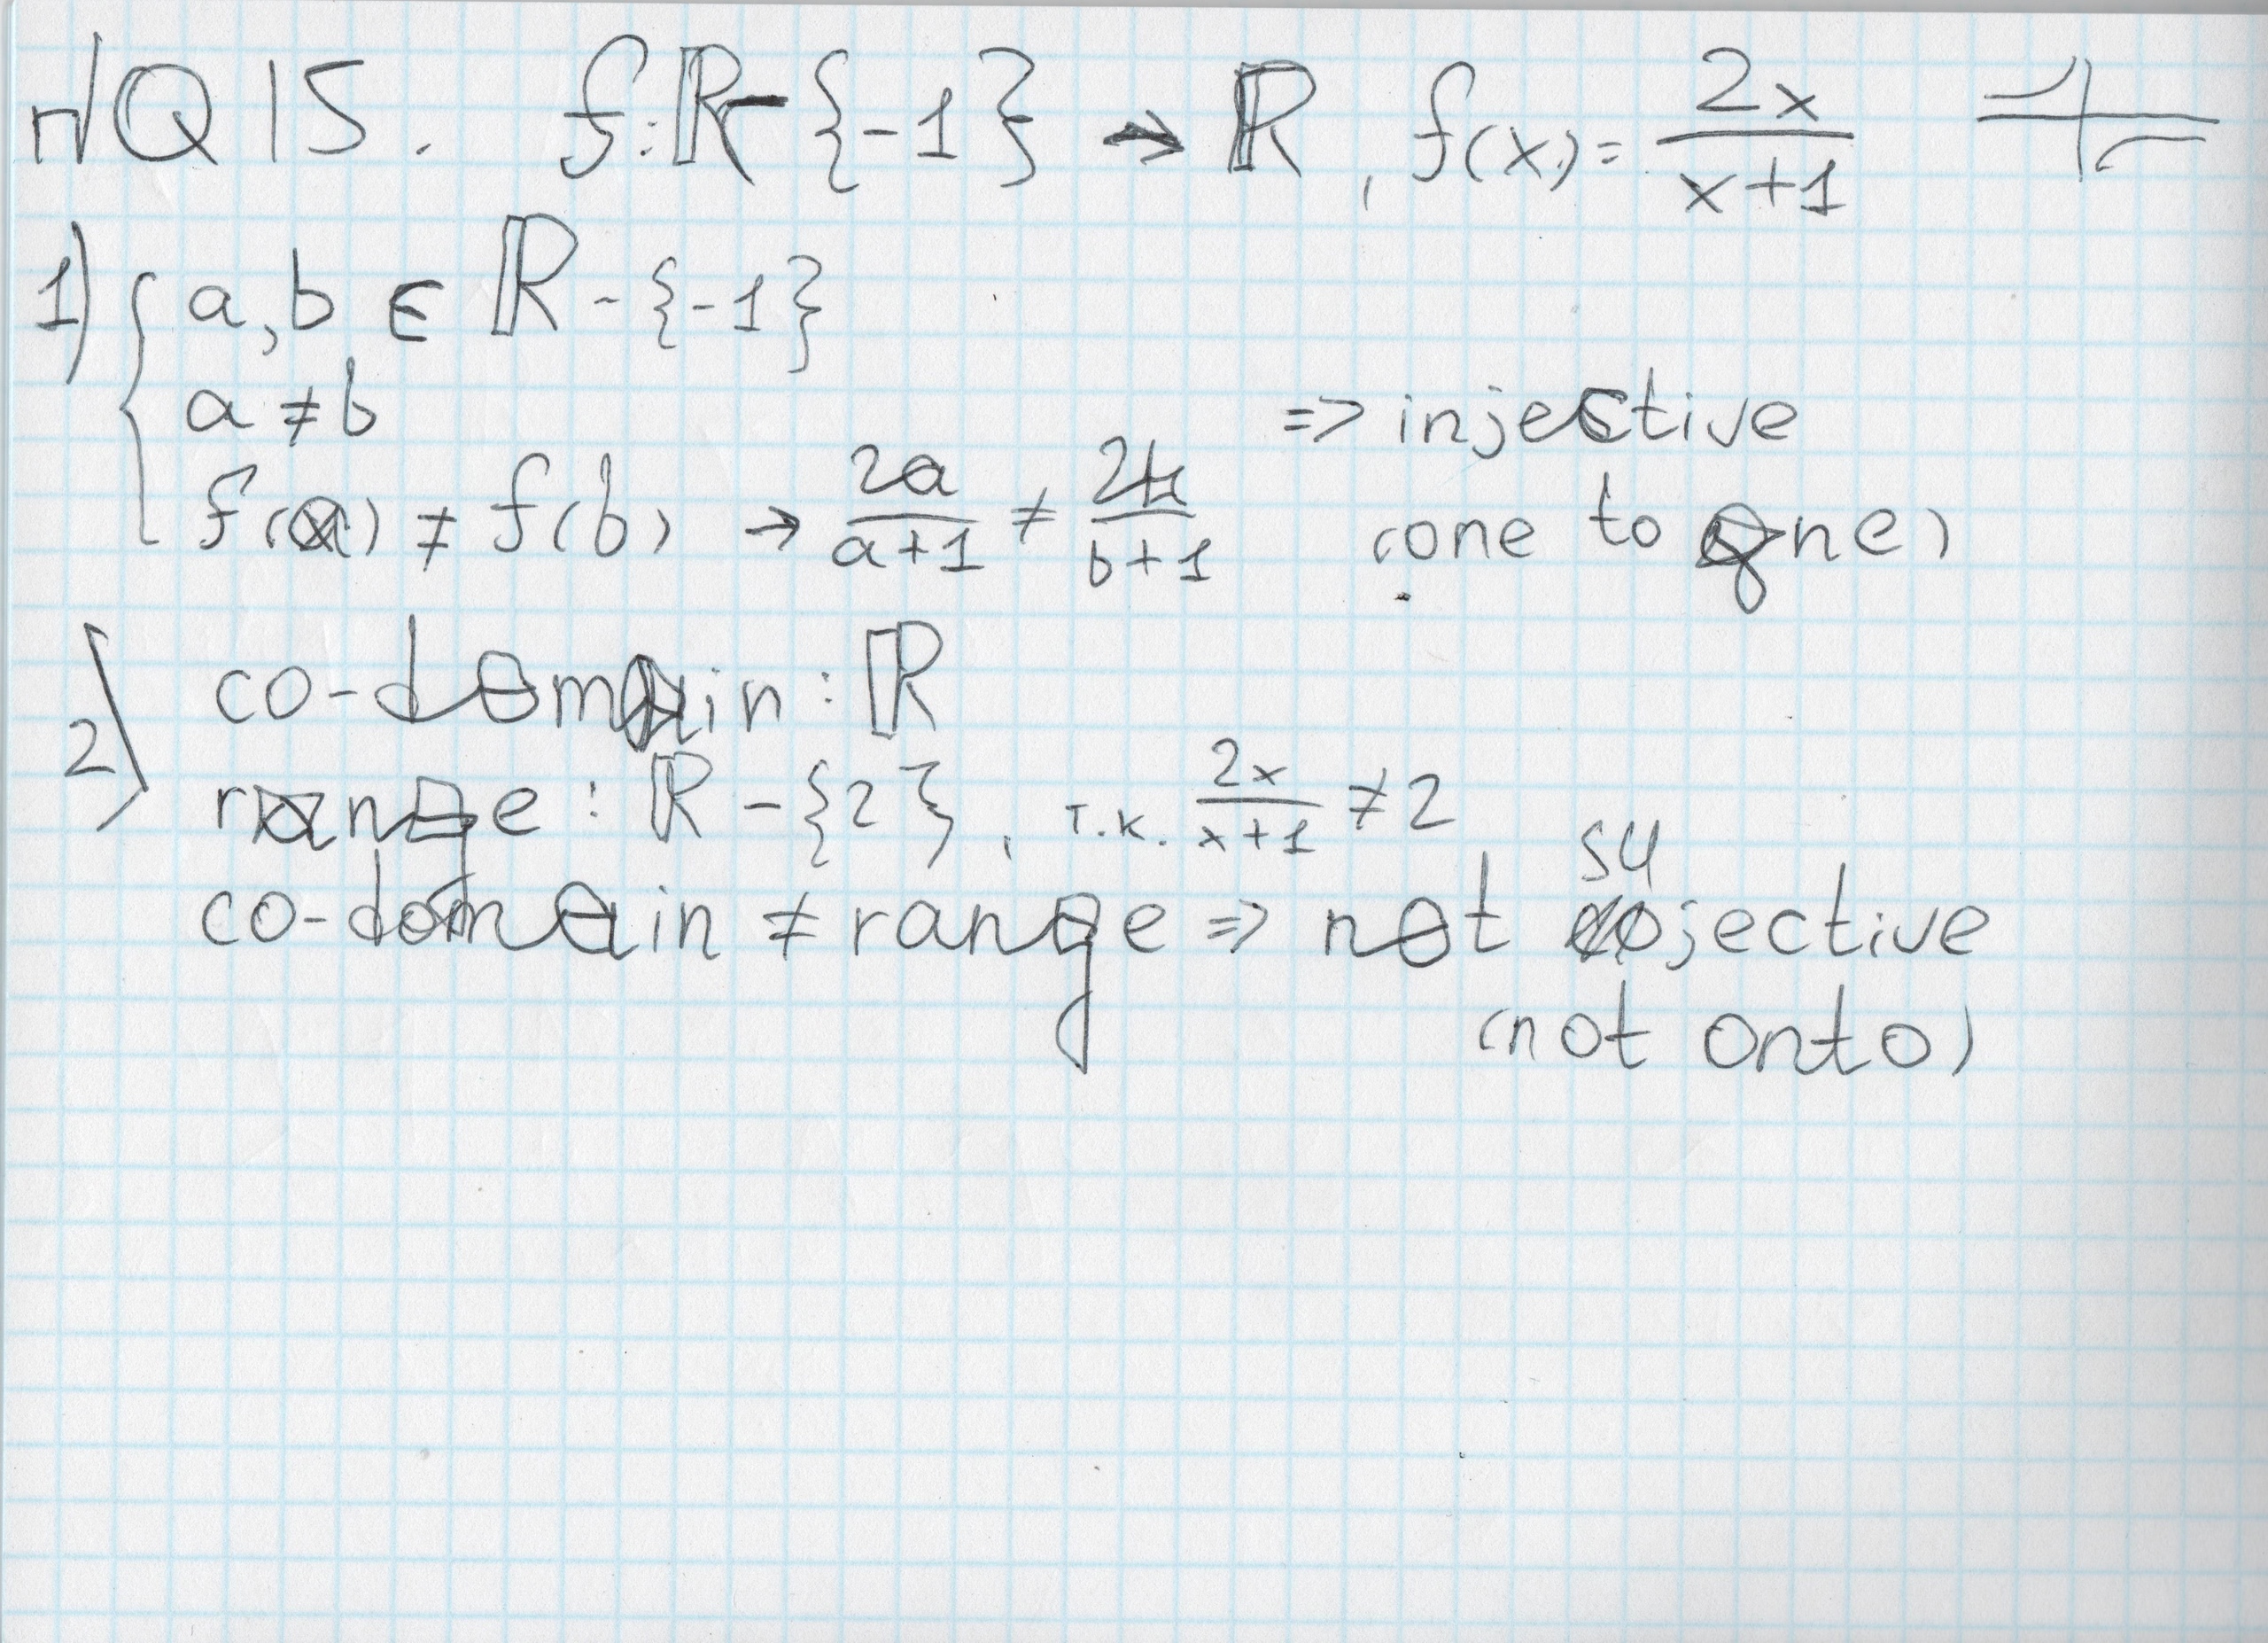 Q15. f: ℝ - {-1} → ℝ, f(x) = 2x/(x+1)
1) { a, b ∈ ℝ - {-1}
a ≠ b
f(a) ≠ f(b) → 2a/(a+1) ≠ 2b/(b+1) => injective
(one to one)
2) co-domain: ℝ
range: ℝ - {2}, т.к. 2x/(x+1) ≠ 2
co-domain ≠ range => not surjective
(not onto)